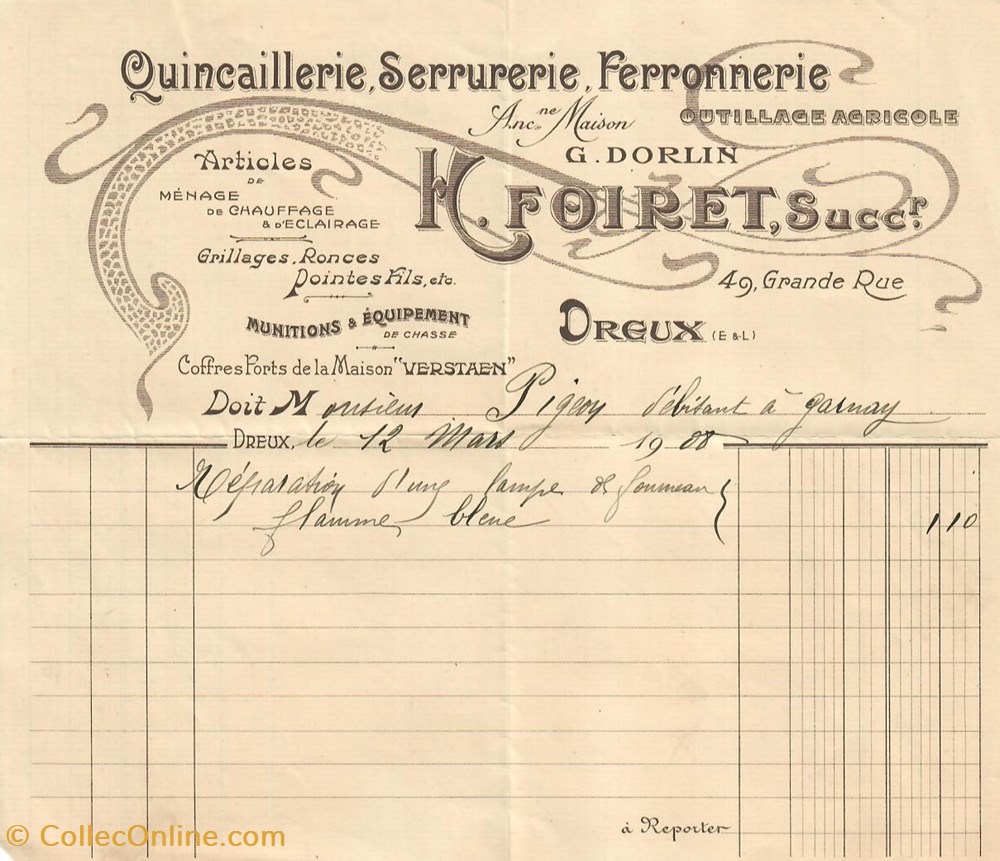 Quincaillerie, Serrurerie, Ferronnerie
OUTILLAGE AGRICOLE
Anc.ne Maison
G. DORLIN
H. FOIRET, Succr.
49, Grande Rue
DREUX (E & L)
Articles
DE
MÉNAGE
DE CHAUFFAGE
& D'ECLAIRAGE
Grillages, Ronces
Pointes Fils, etc.
MUNITIONS & ÉQUIPEMENT
DE CHASSE
Coffres Forts de la Maison "VERSTAEN"
Doit Monsieur Pigeon débitant à Garnay
DREUX, le 12 Mars 1908
Réparation d'une lampe de fourneau
flamme bleue 1 10
à Reporter
© CollecOnline.com